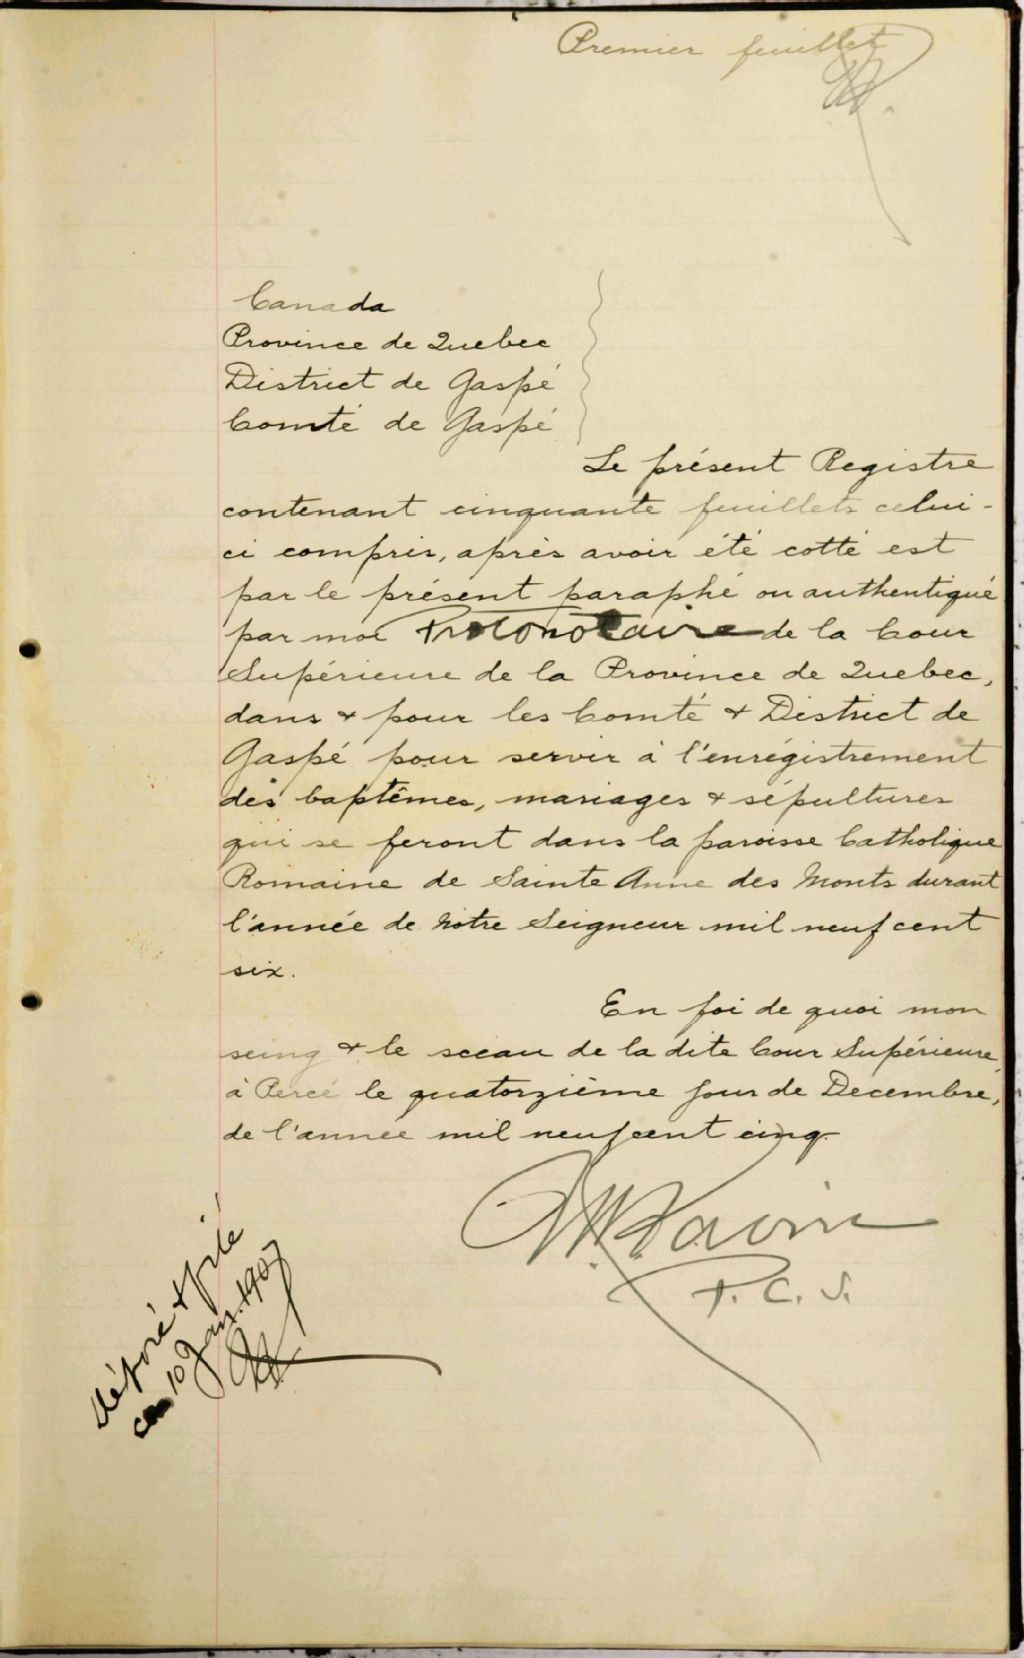 Premier feuillet
Canada
Province de Quebec
District de Gaspé
Comté de Gaspé
Le présent Registre
contenant cinquante feuillets celui-
ci compris, après avoir été cotté est
par le présent paraphé ou authentiqué
par moi Protonotaire de la Cour
Supérieure de la Province de Quebec,
dans & pour les Comté & District de
Gaspé pour servir à l'enrégistrement
des baptêmes, mariages & sépultures
qui se feront dans la paroisse Catholique
Romaine de Sainte Anne des Monts durant
l'année de Notre Seigneur mil neuf cent
six.
En foi de quoi mon
seing & le sceau de la dite Cour Supérieure,
à Percé le quatorzième jour de Decembre,
de l'année mil neuf cent cinq.
P. C. S.
déposé & filé
ce 10 Jany. 1907